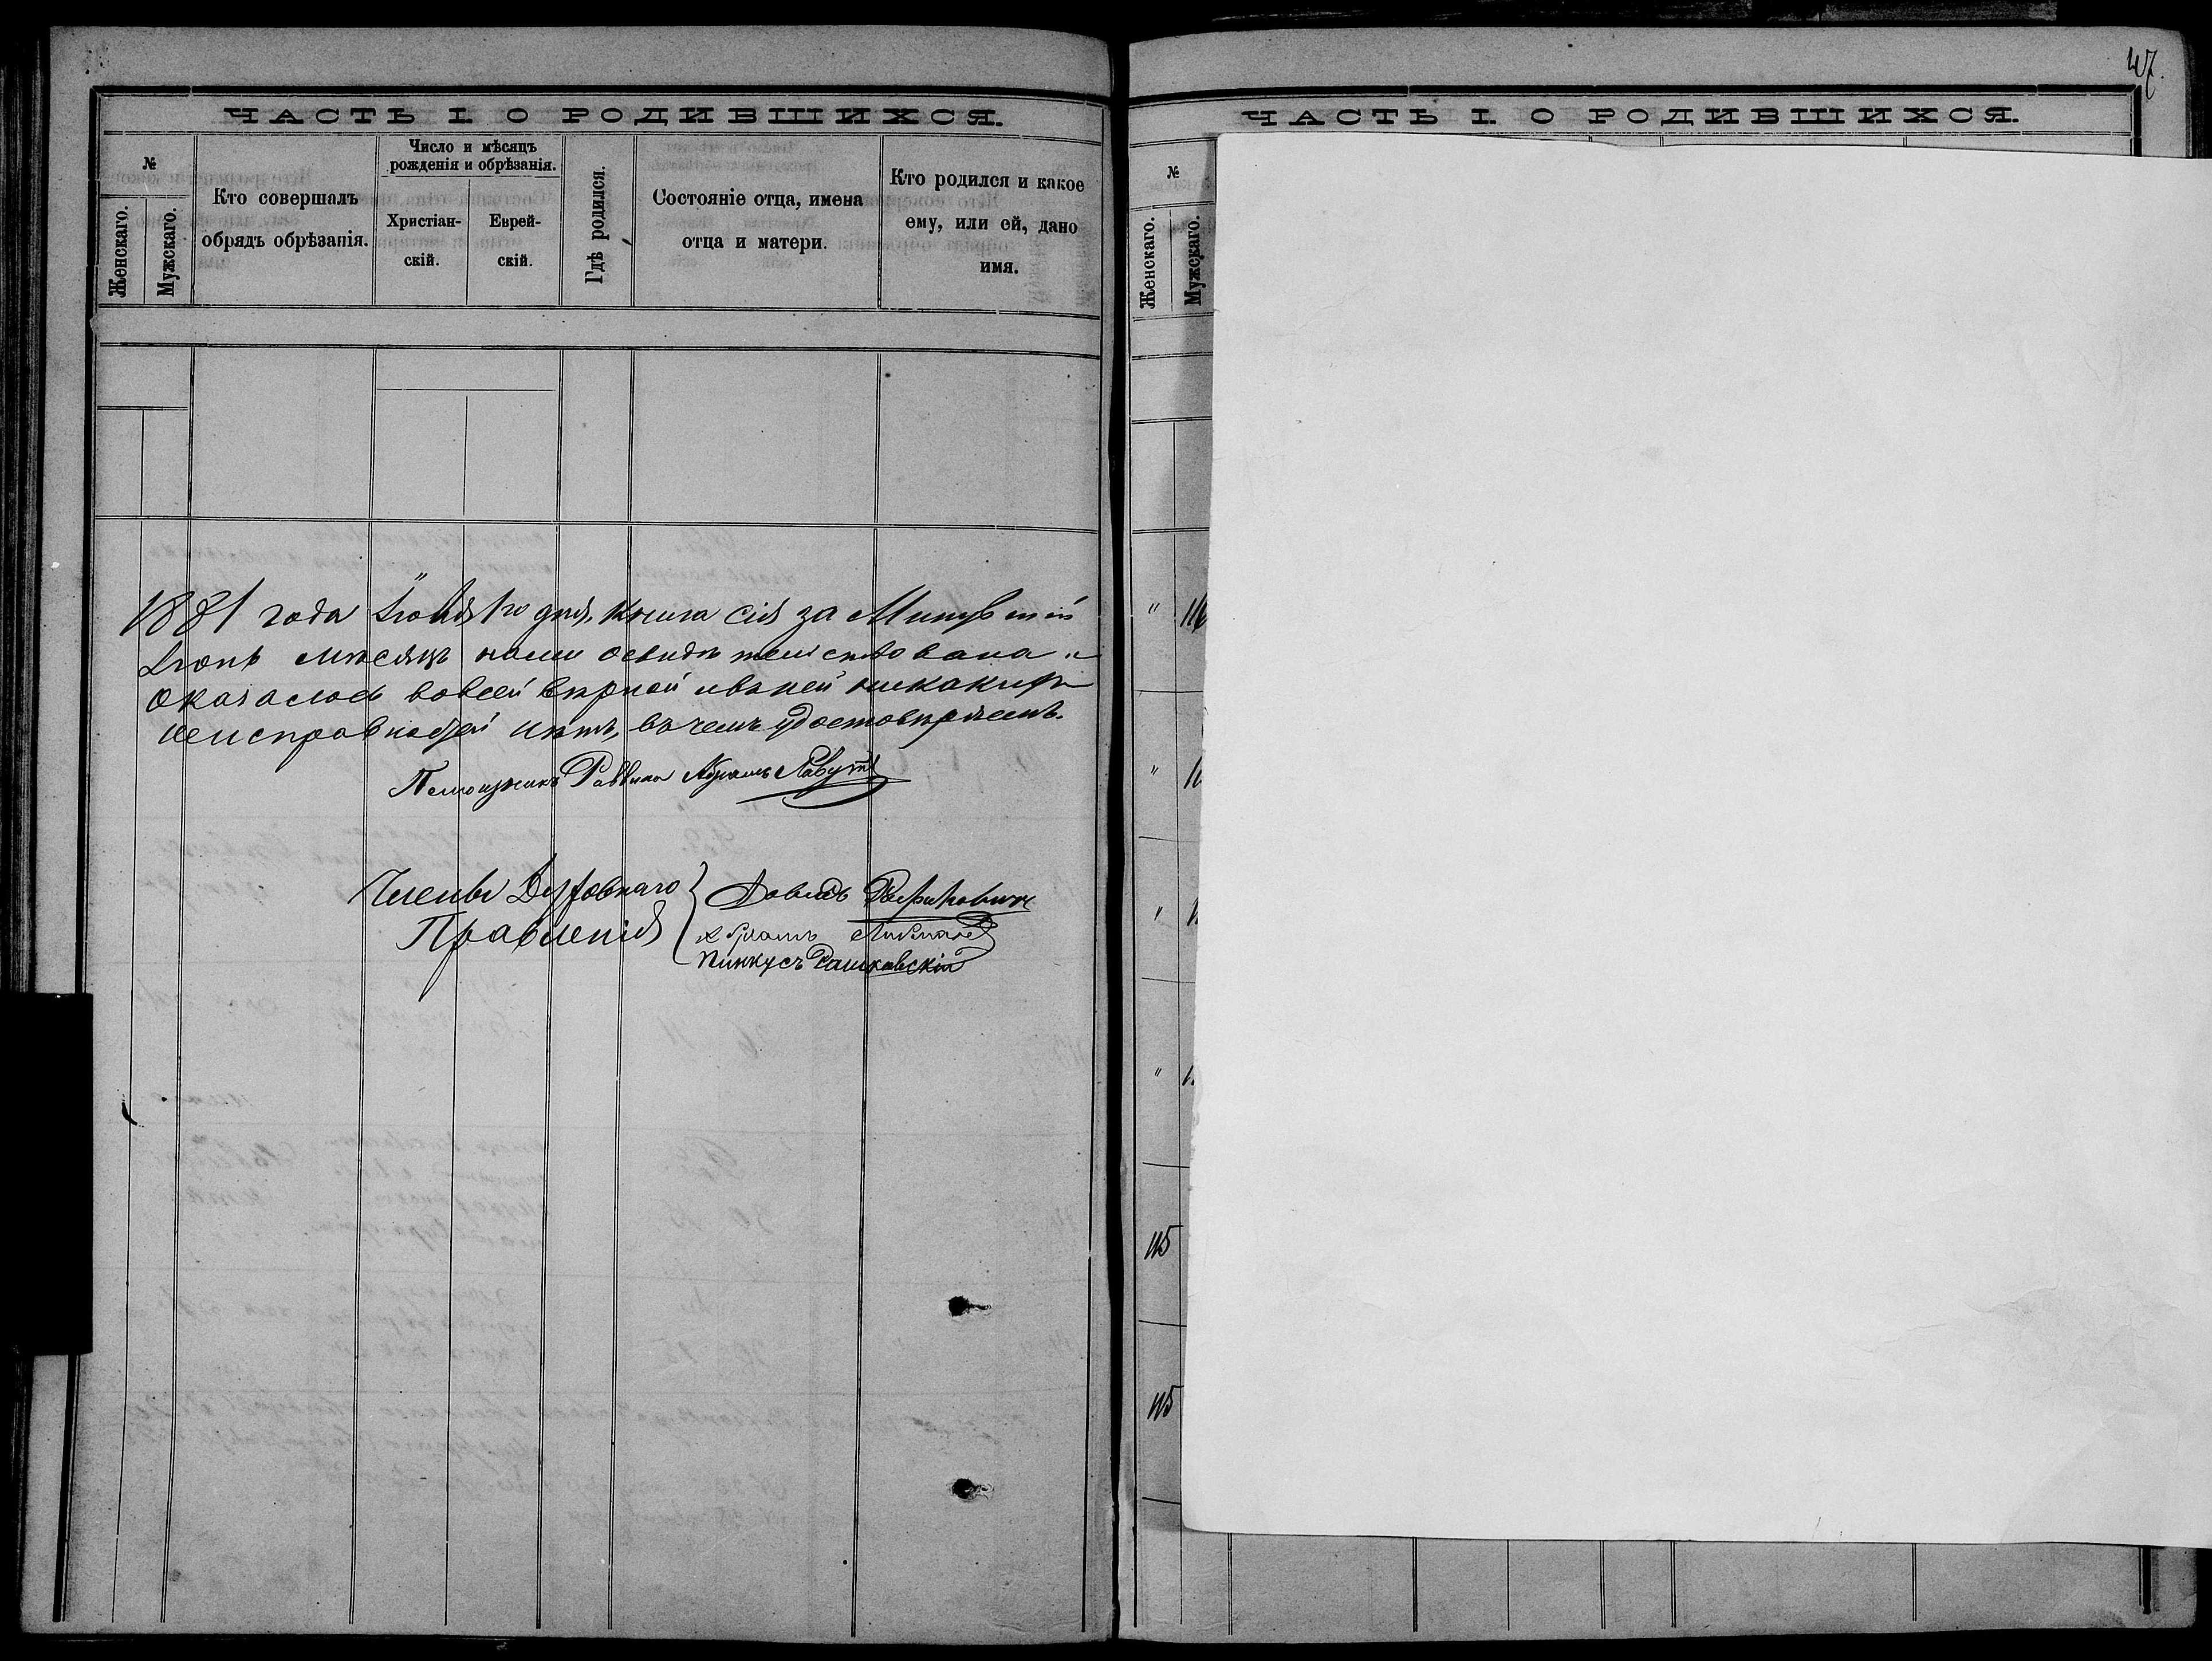 47.
ЧАСТЬ I. О РОДИВШИХСЯ.
№
Женскаго.
Мужскаго.
Кто совершалъ
обрядъ обрѣзанія.
Число и мѣсяцъ
рожденія и обрѣзанія.
Христіан-
скій.
Еврей-
скій.
Гдѣ родился.
Состояніе отца, имена
отца и матери.
Кто родился и какое
ему, или ей, дано
имя.
1881 года 1го дня, Книга сія за Минувшій
Іюнь мѣсяцъ нами освидѣтельствована и
оказалось вовсей вѣрной ивъней никакихъ
неисправностей нѣтъ, въ чемъ удостовѣряемъ.
Помощникъ Раввина Абрамъ
Члены Духовнаго
Правленія
Довидъ
Абрамъ
Пинкусъ Рашковскій
ЧАСТЬ I. О РОДИВШИХСЯ.
№
Женскаго.
Мужскаго.
"
"
"
"
115
115